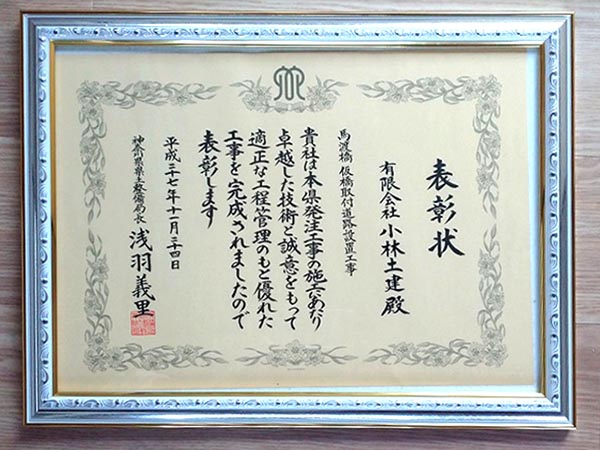 表彰状
有限会社 小林土建 殿
馬渡橋 仮橋取付道路設置工事
貴社は本県発注工事の施工にあたり
卓越した技術と誠意をもって
適正な工程管理のもと優れた
工事を完成されましたので
表彰します
平成二十七年十一月二十四日
神奈川県県土整備局長 浅羽義里